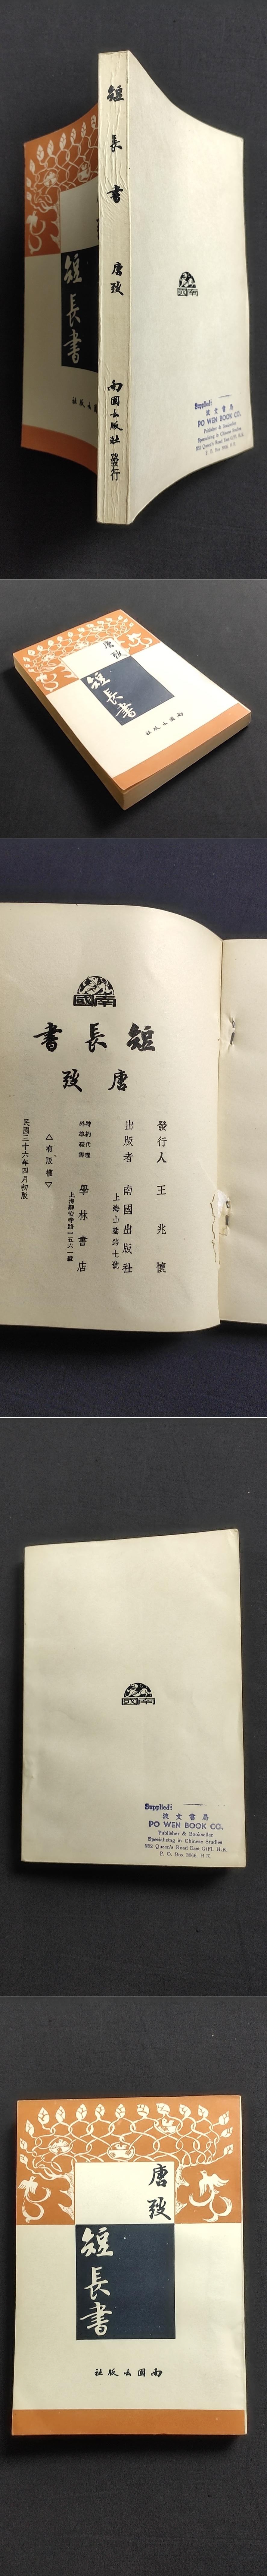 短長書
唐弢
南國出版社 發行
短長書
Supplied:
波文書局
PO WEN BOOK CO.
Publisher & Bookseller
Specializing in Chinese Studies
252 Queen's Road East G/Fl, H.K.
P. O. Box 3066, H.K.
唐弢
短長書
南國出版社
南國
短長書
唐弢
發行人 王兆懷
出版者 南國出版社
上海山陰路七號
特約代理
外埠經售
學林書店
上海靜安寺路一五六一號
△有版權▽
民國三十六年四月初版
南國
Supplied:
波文書局
PO WEN BOOK CO.
Publisher & Bookseller
Specializing in Chinese Studies
252 Queen's Road East G/Fl, H.K.
P. O. Box 3066, H.K.
唐弢
短長書
南國出版社